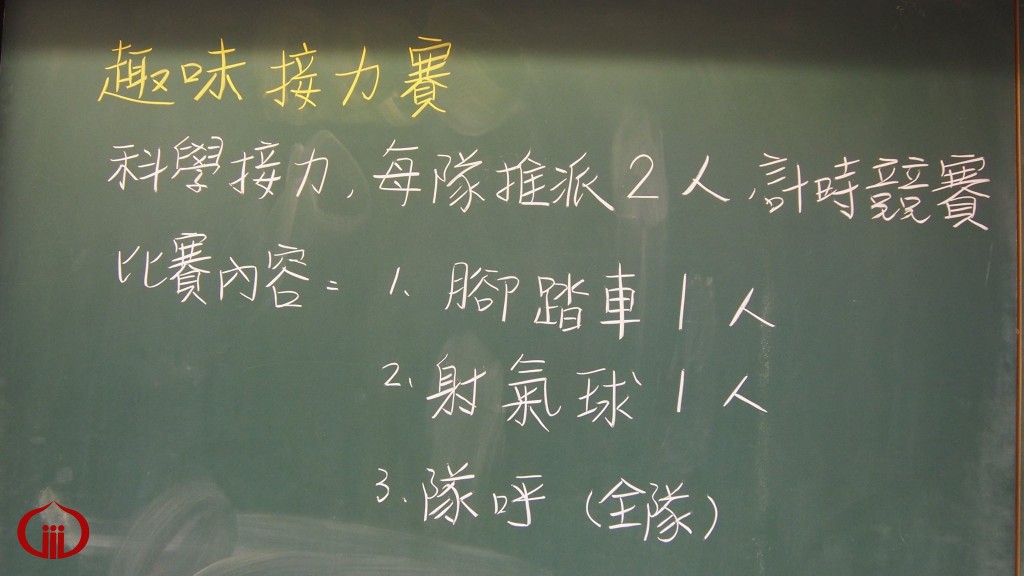 趣味接力賽
科學接力，每隊推派2人，計時競賽
比賽內容：1、腳踏車1人
2、射氣球1人
3、隊呼（全隊）